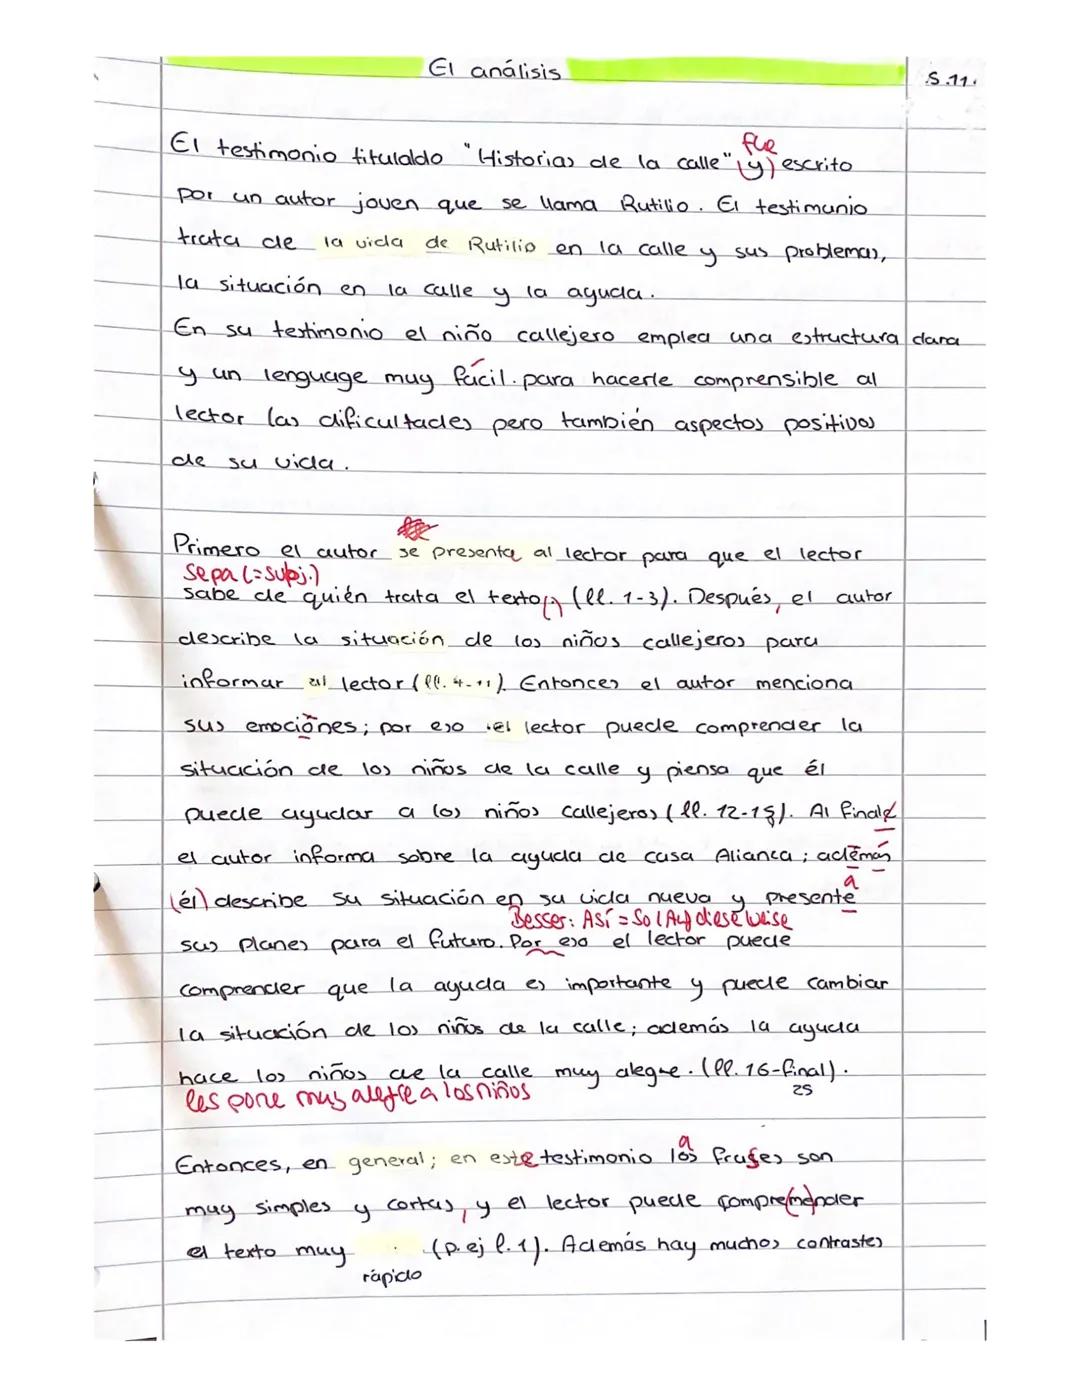 El análisis
S.11.
fue
El testimonio titulaldo "Historias de la calle" (y) escrito
por un autor joven que se llama Rutilio. El testimunio
trata de la vida de Rutilio en la calle y sus problemas,
la situación en la calle y la ayuda.
En su testimonio el niño callejero emplea una estructura clara
y un lenguage muy fácil. para hacerle comprensible al
lector las dificultades pero también aspectos positivos
de su vida.
Primero el autor se presenta al lector para que el lector
sepa (=subj.)
sabe de quién trata el texto(.) (ll. 1-3). Después, el autor
describe la situación de los niños callejeros para
informar al lector (ll. 4-11). Entonces el autor menciona
sus emociones; por eso el lector puede comprender la
situación de los niños de la calle y piensa que él
puede ayudar a los niños callejeros (ll. 12-15). Al finale
el autor informa sobre la ayuda de casa Alianca; además
a
(él) describe su situación en su vida nueva y presente
Besser: Así = So / Auf diese Weise
sus planes para el futuro. Por eso el lector puede
comprender que la ayuda es importante y puede cambiar
la situación de los niños de la calle; además la ayuda
hace los niños de la calle muy alegre. (ll. 16-final).
les pone muy alegre a los niños
25
a
Entonces, en general; en este testimonio los frases son
muy simples y cortas, y el lector puede compre(men)nder
el texto muy (p. ej l. 1). Además hay muchos contrastes
rápido